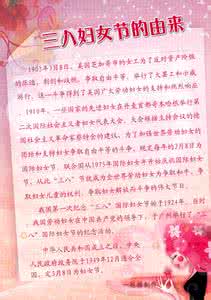 三八妇女节的由来
1903年3月8日，美国芝加哥市的女工为了反对资产阶级
的压迫、剥削和歧视，争取自由平等，举行了大罢工和示威
游行。这一斗争得到了美国广大劳动妇女的支持和热烈响应
1910年，一些国家的先进妇女在丹麦首都哥本哈根举行第
二次国际社会主义者妇女代表大会。大会根据主持会议的德
国社会主义革命家蔡特金的建议，为了加强世界劳动妇女的
团结和支持妇女争取自由平等的斗争，规定每年的3月8日为
国际妇女节。联合国从1975年国际妇女年开始庆祝国际妇女
节。从此“三八”节就成为全世界劳动妇女为争取和平、争
取妇女儿童的权利、争取妇女解放而斗争的伟大节日。
我国第一次纪念“三八”国际妇女节始于1924年，在何
我国劳动妇女在中国共产党的领导下，于广州举行了“三
八”国际妇女节的纪念活动。
中华人民共和国成立之后，中央
人民政府政务院于1949年12月通令全
国，定3月8日为妇女节。